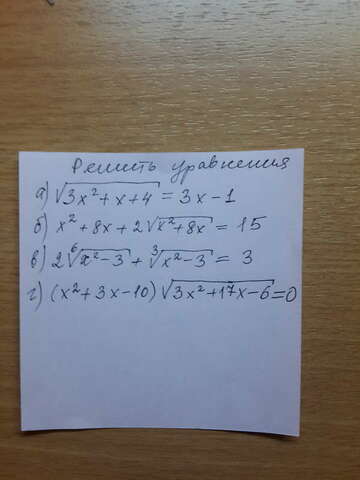 Решить уравнения
а) √3x²+x+4 = 3x-1
б) x²+8x+2√x²+8x = 15
в) 2⁶√x²-3 + ³√x²-3 = 3
г) (x²+3x-10)√3x²+17x-6=0